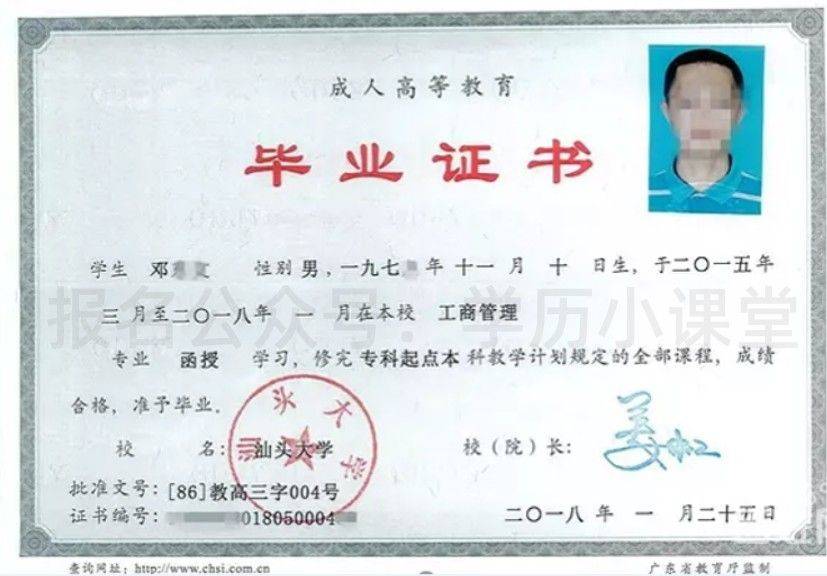 成人高等教育
毕业证书
学生 邓 性别 男，一九七 年 十一 月 十 日生，于二〇一五年
三 月至二〇一八年 一 月在本校 工商管理
报名公众号：学历小课堂
专业 函授 学习，修完 专科起点本 科教学计划规定的全部课程，成绩
合格，准予毕业。
汕头大学
校 名：汕头大学 校（院）长：
批准文号：[86]教高三字004号
证书编号： 018050004 二〇一八 年 一 月二十五日
查询网址：http://www.chsi.com.cn 广东省教育厅监制